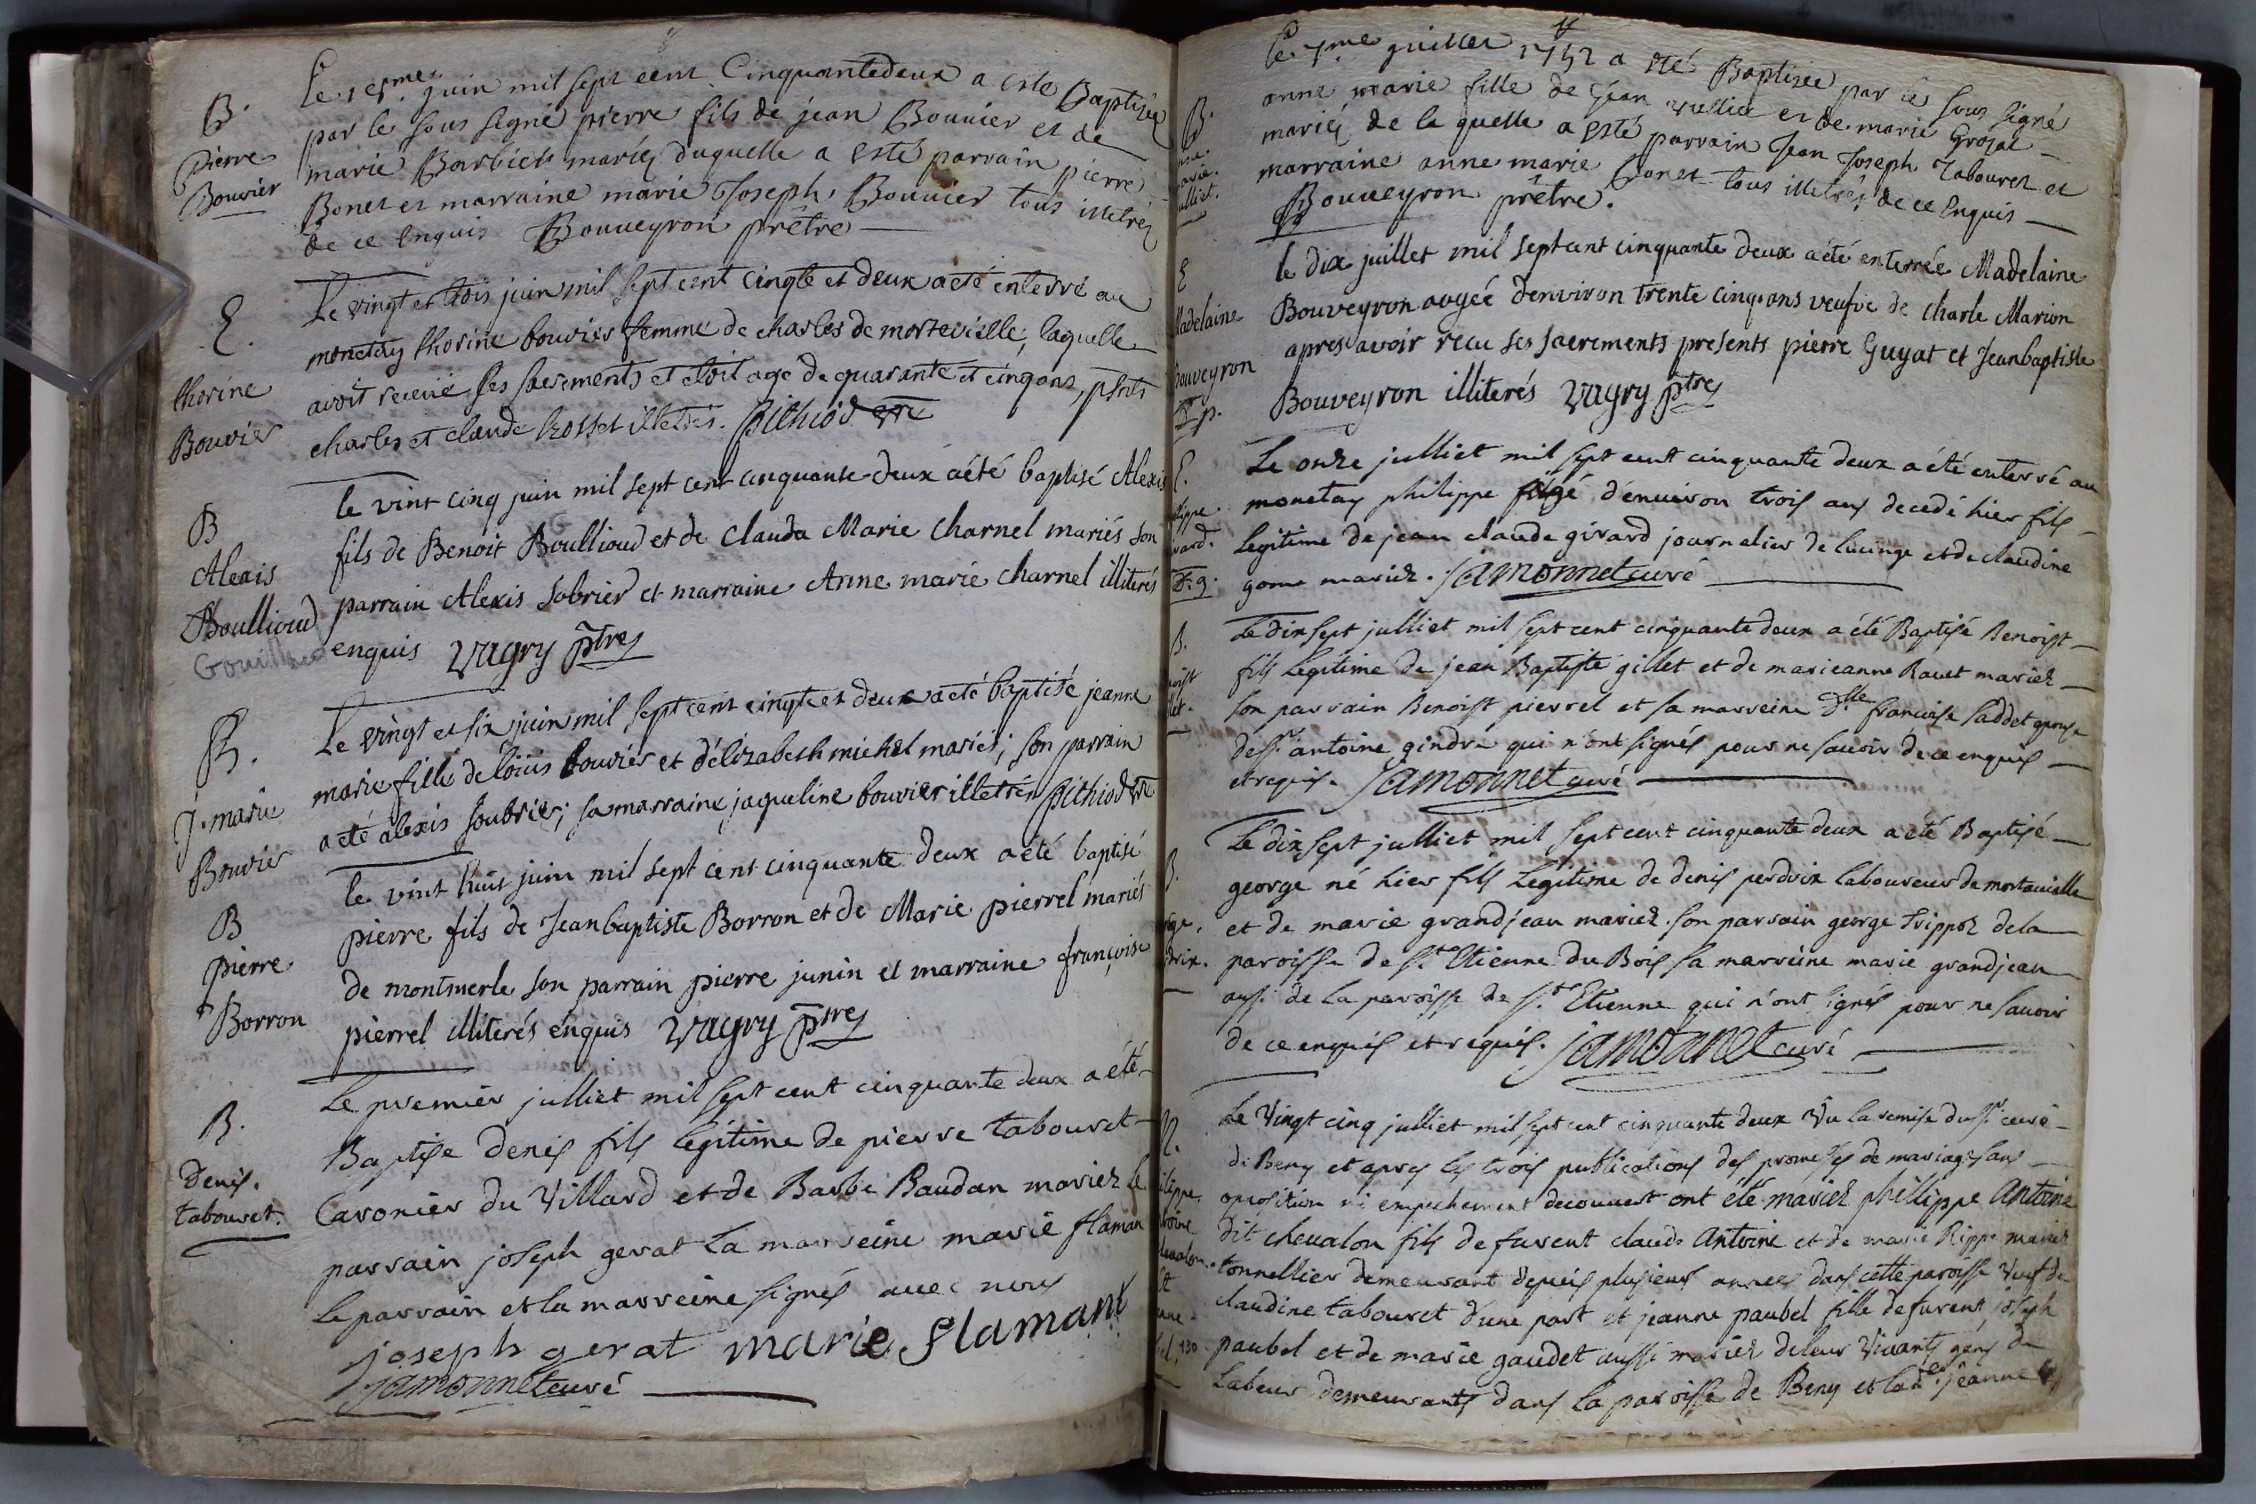 B.
Pierre
Bouvier
Le 15me. juin mil sept cent Cinquantedeux a este Baptizée
par le sous signé pierre fils de jean Bouuier et de
marie Barbier mariéz duquelle a esté parrain pierre
Bonet et marraine marie Joseph Bouuier tous illitréz
de ce Enquis Bouueyron prêtre
E.
thorine
Bouvier
Le vingt et trois juin mil sept cent cinqte et deux a eté enterré au
monetay thorine bouvier femme de charles de mortevielle, laquelle
avoit receüe ses sacrements et etoit age de quarante et cinq ans, pnts
charles et claude Rosset illetrés. pithiod vre
B
Alexis
Boullioud
le vint cinq juin mil sept cent cinquante deux a été baptisé Alexis
fils de Benoit Boullioud et de Clauda Marie Charnel mariés son
parrain Alexis Sobrier et marraine Anne marie Charnel illiterés
enquis Vagry ptre
B.
J. marie
Bouvier
Le vingt et six juin mil sept cent cinqte et deux a eté baptisé jeanne
marie fille de loüis bouvier et d'élizabeth michel mariés; son parrain
a eté alexis soubrier; sa marraine jaqueline bouvier illetrés pithiod vre
B
pierre
Borron
le vint huit juin mil sept cent cinquante deux a été baptisé
pierre fils de Jeanbaptiste Borron et de Marie pierrel mariés
de montmerle son parrain pierre junin et marraine françoise
pierrel illiterés enquis Vagry ptre
B.
denis.
tabouret.
Le premier julliet mil sept cent cinquante deux a été
Baptise denis fils legitime de pierre tabouret
Caronier du Villard et de Barbe Baudan mariez le
parrain joseph gerat La marreine marie flaman
Le parrain et la marreine signés avec nous
joseph gerat marie flamant
jamonnet curé
Le 7.me juillet 1752 a été Baptizée par le sous signé
anne marie fille de Jean vulliet et de marie Grozat
mariéz de la quelle a esté parrain Jean Joseph Tabouret et
marraine anne marie Bonet tous illitréz de ce Enquis
Bouueyron prêtre.
E
Madelaine
Bouveyron
le dix juillet mil sept cent cinquante deux a été enterrée Madelaine
Bouveyron aagée d'environ trente cinq ans veufve de Charle Marion
apres avoir recu ses sacrements presents pierre Guyat et Jeanbaptiste
Bouveyron illiterés Vagry ptre
E.
Le onze julliet mil sept cent cinquante deux a été enterré au
monetay philippe âgé d'enuiron trois ans decedé hier fils
Legitime de jean claude girard journelier de lucinge et de claudine
gome mariez. jamonnet curé
B.
Le dix sept julliet mil sept cent cinquante deux a été Baptisé Benoist
fils Legitime de jean Baptiste gillet et de marieanne Rauet mariez
son parrain Benoist pierrel et sa marreine dlle françoise saddet epouse
de sr. antoine gindre qui n'ont signés pour ne sauoir de ce enquis
et requis. jamonnet curé
B.
Le dix sept julliet mil sept cent cinquante deux a été Baptisé
george né hier fils Legitime de denis perdrix Laboureur de mortauielle
et de marie grandjean mariez. son parrain george trippoz de la
paroisse de st. Etienne du Bois sa marreine marie grandjean
aussi de la paroisse de st. Etienne qui n'ont signés pour ne sauoir
de ce enquis et requis. jamonnet curé
Le Vingt cinq julliet mil sept cent cinquante deux Vu la remise du sr. curé
de Beny et apres les trois publications des promesses de mariage sans
oposition ni empechement decouuert ont été mariez phillippe Antoine
dit cheualon fils de furent claude Antoine et de marie Rippe mariez
tonnellier demeurant depuis plusieurs années dans cette paroisse Veuf de
claudine tabouret d'une part et jeanne paubel fille de furent joseph
paubel et de marie gaudet aussi mariez de leur Vivants gens de
Labeur demeurants dans la paroisse de Beny et lad. jeanne